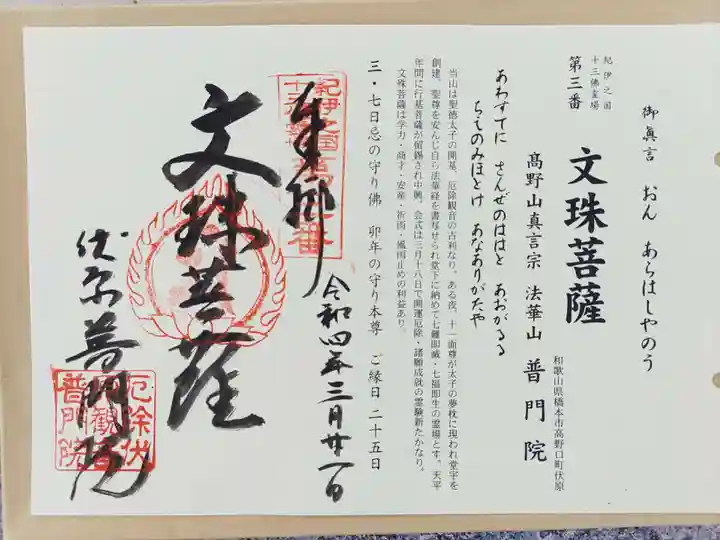 御眞言　おん　あらはしやのう
紀伊之国
十三佛霊場
第三番
文珠菩薩
高野山真言宗　法華山　普門院
和歌山県橋本市高野口町伏原
あわすてに　さんぜのははと　あおがるる
ちえのみほとけ　あなありがたや
当山は聖徳太子の開基、厄除観音の古刹なり。ある夜、十一面尊が太子の夢枕に現われ堂宇を
創建、聖尊を安んじ自ら法華経を書写せられ堂下に納めて七難即滅・七福即生の霊場とす。天平
年間に行基菩薩が留錫され中興。会式は三月十八日で開運厄除・諸願成就の霊験新たかなり。
文殊菩薩は学力・商才・安産・祈雨・風雨止めの利益あり。
三・七日忌の守り佛　卯年の守り本尊　ご縁日　二十五日
令和四年三月廿一日
奉拝
紀伊之国
十三
番
文珠菩薩
伏原普門院
厄除伏
観音
普門院